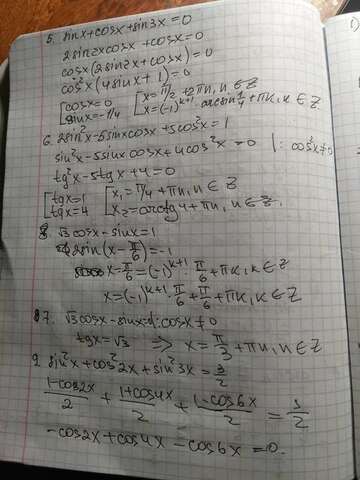 5. sinx+cosx+sin3x=0
2sin2xcosx+cosx=0
cosx(2sin2x+cosx)=0
cos²x(4sinx+1)=0
[cosx=0 [x=π/2+2πn, n∈Z
[sinx=-1/4 [x=(-1)^(k+1)·arcsin 1/4+πk, k∈Z
6. 2sin²x-5sinxcosx+5cos²x=1
sin²x-5sinxcosx+4cos²x=0 |:cos²x≠0
tg²x-5tgx+4=0
[tgx=1 [x₁=π/4+πn, n∈Z
[tgx=4 [x₂=arctg4+πn, n∈Z.
8. √3cosx-sinx=1
2sin(x-π/6)=-1
x-π/6=(-1)^(k+1)·π/6+πk, k∈Z
x=(-1)^(k+1)·π/6+π/6+πk, k∈Z
7. √3cosx-sinx=0|:cosx≠0
tgx=√3 ⇒ x=π/3+πn, n∈Z
9. sin²x+cos²2x+sin²3x=3/2
(1-cos2x)/2+(1+cos4x)/2+(1-cos6x)/2=3/2
-cos2x+cos4x-cos6x=0.